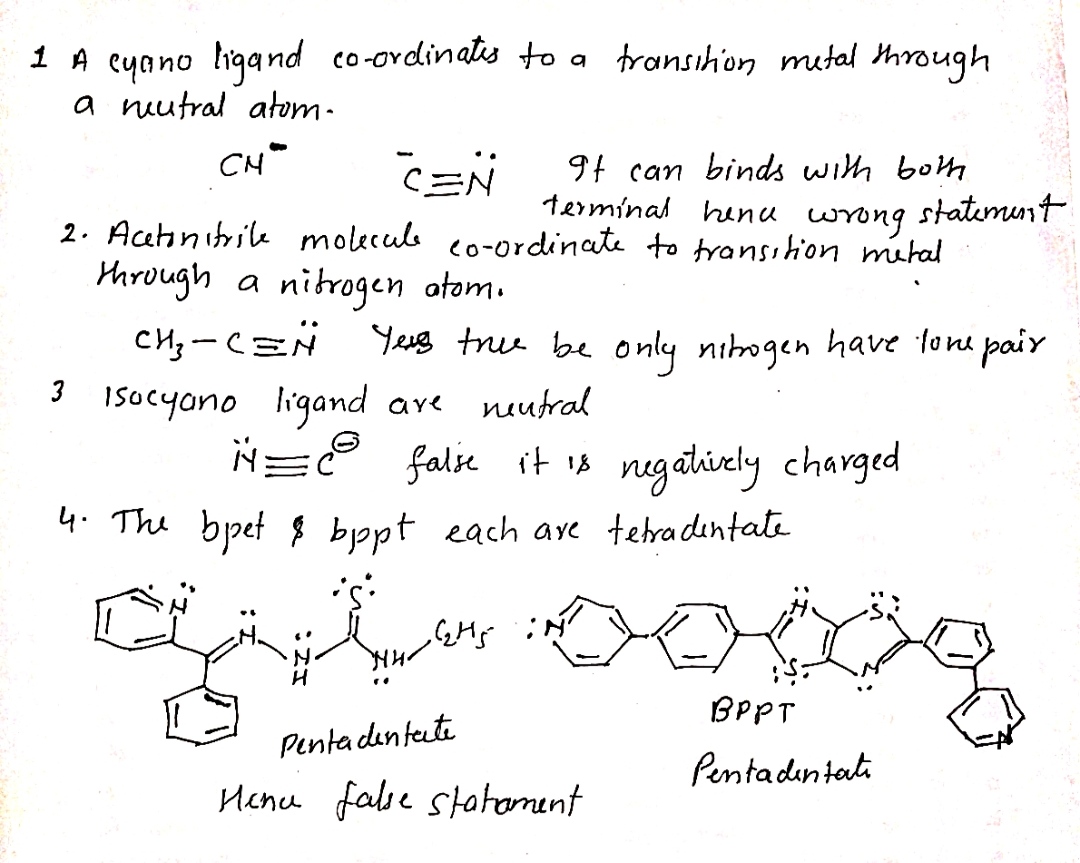 1 A cyano ligand co-ordinates to a transition metal through
a neutral atom.
CN⁻ C̄≡N̈ It can binds with both
terminal hence wrong statement
2. Acetonitrile molecule co-ordinate to transition metal
through a nitrogen atom.
CH₃-C≡N̈ Yes true be only nitrogen have lone pair
3 Isocyano ligand are neutral
N̈≡C⊖ false it is negatively charged
4. The bpet & bppt each are tetradentate
N̈ N̈ N̈ H S NH C₂H₅ :N N S S N N
BPPT
Pentadentate
Pentadentate
Hence false statement